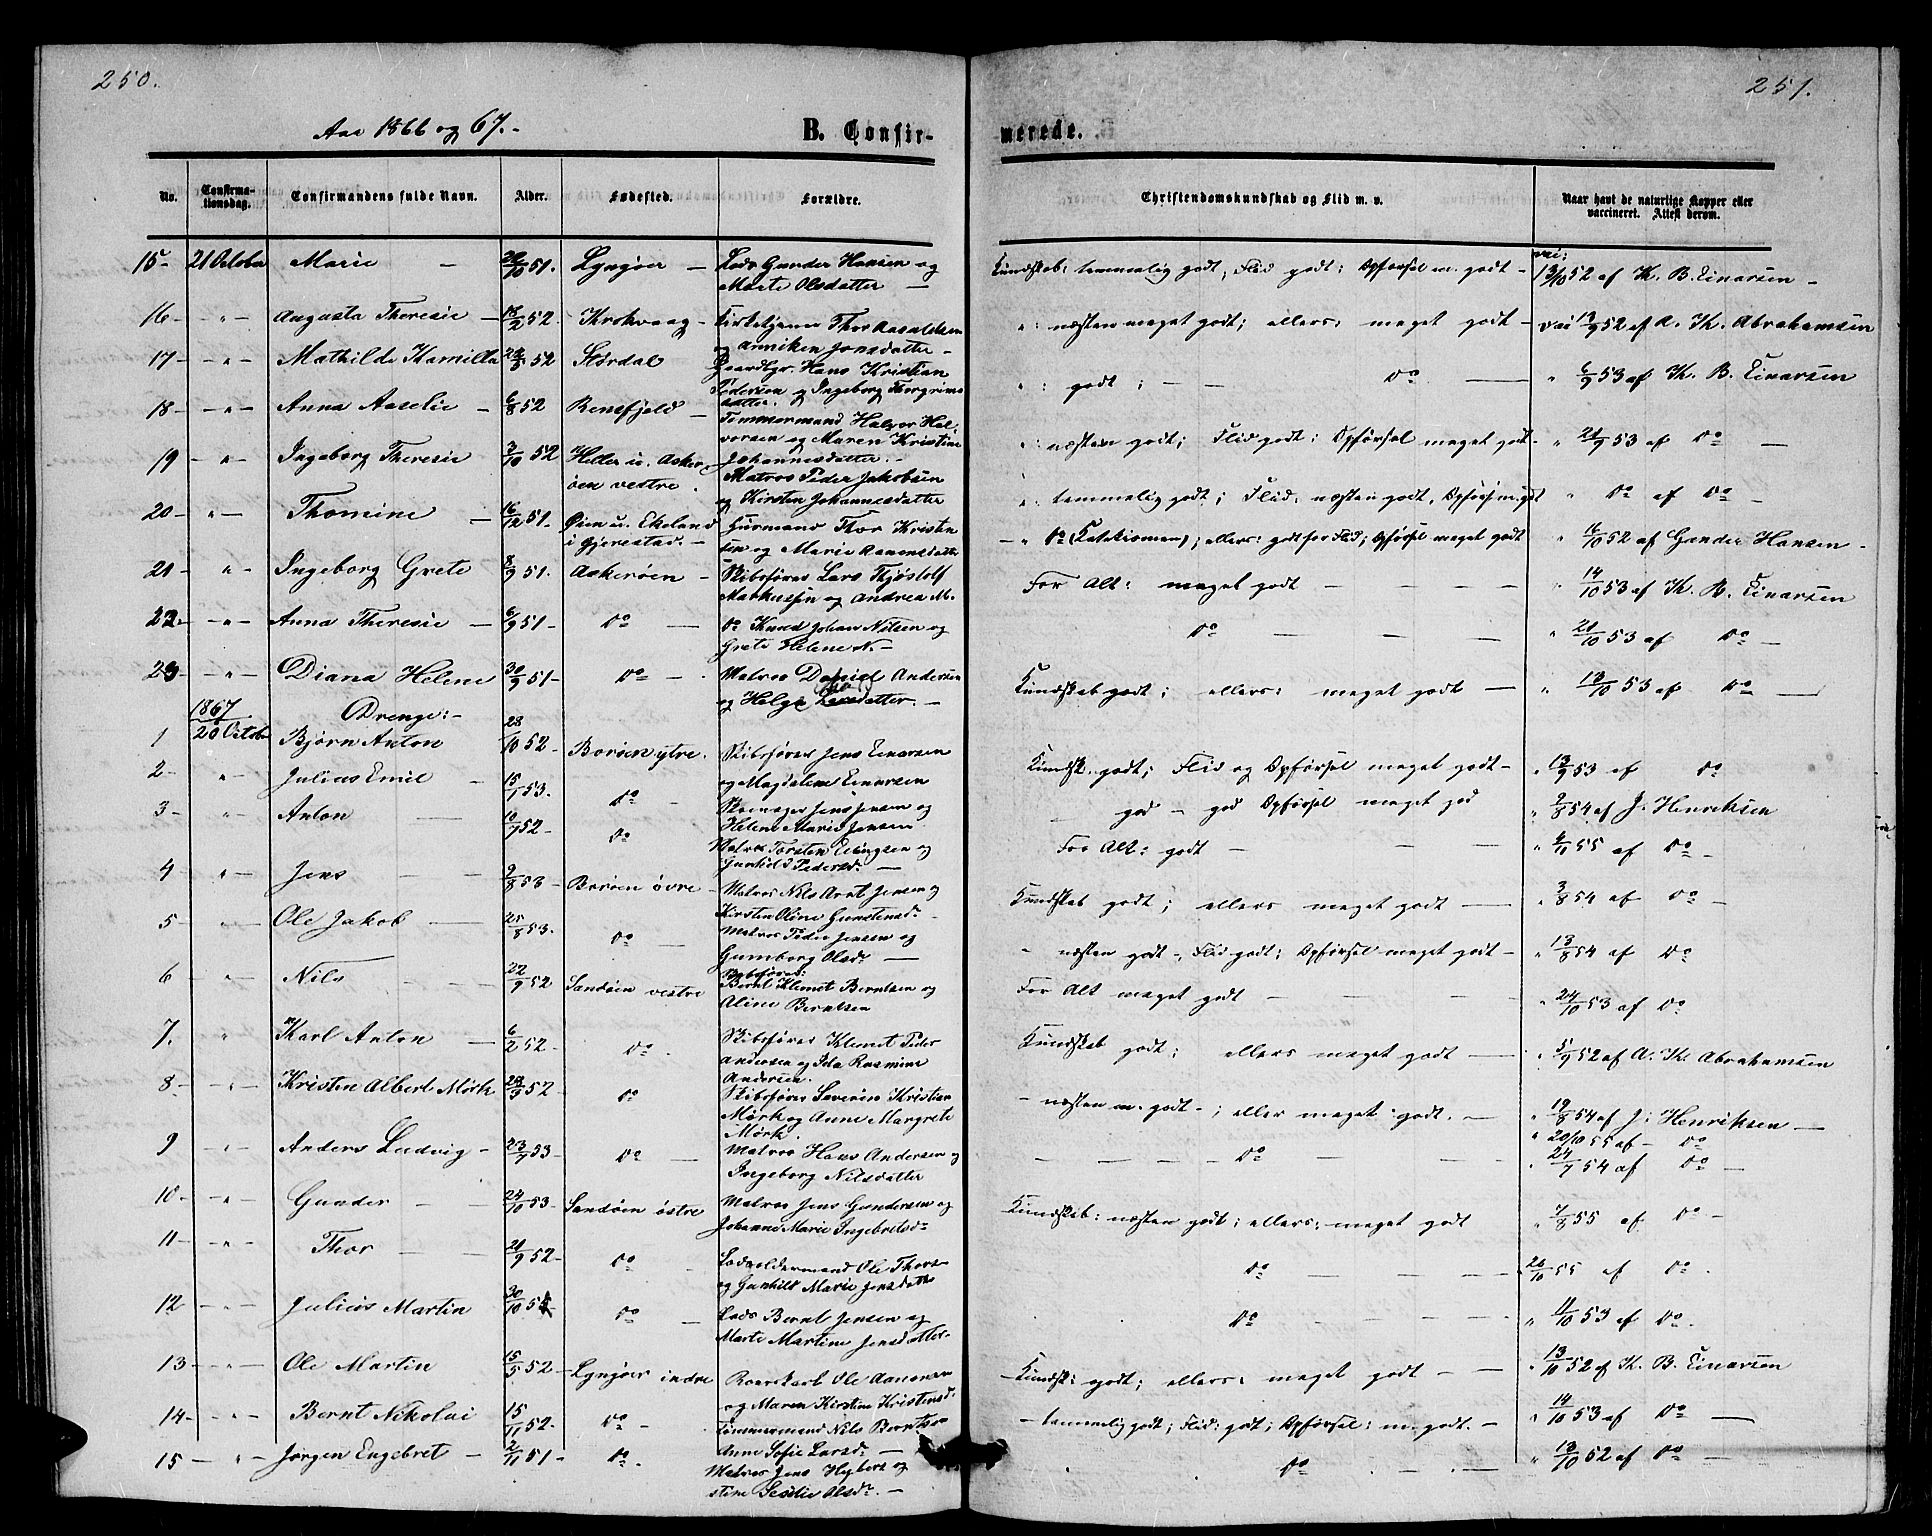 250.
251.
Aar 1866 og 67.-
B. Confir-
merede.
No. Confirma-tionsdag. Confirmandens fulde Navn. Alder. Fødested. Forældre. Christendomskundskab og Flid m. v. Naar havt de naturlige Kopper eller vaccineret. Attest derom.
15- 21 October Marie - 51. Lyngøer - Lods Gunder Hansen og
Marte Olsdatter - Kundskab: temmelig godt; Flid godt; Opførsel m. godt - 52 af K. B. Einarsen -
16- -"- Augusta Theresie - 18/2 52. Krokvaag - Kirketjener Thor Aasuldsen
og Anniken Jonsdatter - ": næsten meget godt; ellers: meget godt - 52 af A. K. Abrahamsen
17- -"- Mathilde Kamilla 52 Størdal Gaardbgr. Hans Kristian
Pedersen og Ingeborg Thorgrims
datter. ": godt; - - Do - " 6/9 53 af K. B. Einarsen
18- -"- Anna Aaselie - 6/8 52 Rensfjeld - Tømmermand Halvor Hal-
vorsen og Maren Kristine
Johannesdatter. - ": næsten godt; Flid godt; Opførsel meget godt - " 21/9 53 af Do -
19 -"- Ingeborg Theresie 3/10 52 Heller u. Asker-
øen vestre. Matros Peder Jakobsen
og Kirsten Johannesdatter ": temmelig godt; Flid: næsten godt, Opførs. m. godt " Do af Do -
20- -"- Thomine - 16/12 51. Øien u. Ekeland
i Gjerestad. - Gurmand Thor Kristen
sen og Marie Aanensdatter - " Do (Katekismen); ellers: godt for Flid; Opførsel meget godt " 16/10 52 af Gunder Hansen -
21- -"- Ingeborg Grete 8/9 51. Askerøen - Skibsfører Lars Thjøstolf
Markussen og Andrea M. For Alt: meget godt - - - " 14/10 53 af K. B. Einarsen
22- -"- Anna Theresie - 6/9 51- Do - Do Knud Johan Nilsen og
Grete Helene N. - Do - - - " 21/10 53 af Do -
23- -"- Diana Helene 30/9 51- Do - Matros Daniel Andersen
og Helge datter. - Kundskab godt; ellers: meget godt - " 13/10 53 af Do -
1867 Drenge:-
1 20 Octob Bjørn Anton 28/10 52- Borøen ytre. Skibsfører Jens Einarsen
og Magdalene Einarsen Kundsk. godt; Flid og Opførsel meget godt - " 13/9 53 af Do
2- " Julius Emil - 15/1 53. Do - Jens Jensen og
Helene Marie Jensen god - god Opførsel meget god " 9/8 54 af J. Henriksen
3- -"- Anton - 10/7 52- Do Matros Torsten Ellingsen og
Gunhild Pedersd: - For Alt: godt - - - 55 af Do -
4 " Jens - - 9/8 53- Borøen øvre - Matros Nils Arnt Jensen og
Kirsten Oline Gundersd:- Kundskab godt; ellers meget godt - - " 3/8 54 af Do -
5 " Ole Jakob - 25/8 53. Do - Matros Peder Jensen og
Gunborg Olsd: - - næsten godt -, Flid godt; Opførsel meget godt - " 13/8 54 af Do
6 -"- Nils - - - 22/9 52 Sandøen vestre Skibsfører:
Bernt Klemet Berntsen og
Aline Berntsen For Alt meget godt - - - " 24/10 53 af Do
7. " Karl Anton - 6/2 52- Do. Skibsfører Klemet Peder
Andersen og Ida Rasmine
Andersen. Kundskab godt; ellers meget godt - " 5/9 52 af A. K. Abrahamsen
8- -"- Kristen Albert Mørk 28/3 52- Do Skibsfører Severin Kristian
Mørk og Anne Margrete
Mørk. - næsten m. godt -; eller meget godt. - " 19/8 54 af J. Henriksen -
" 20/10 55 af - Do
9 -"- Anders Ludvig - 23/7 53- Do - Matros Hans Andersen og
Ingeborg Nilsdatter - - - Do - - - " 24/7 54 af Do -
10- -"- Gunder - - 24/10 53- Sandøen østre Matros Jens Gundersen og
Johanne Marie Ingebretsd:- Kundskab: næsten godt; ellers: meget godt 55 af Do -
11- -"- Thor - - 21/9 52- Do - Lodsoldermand Ole Thors-
og Gunhild Marie Jensdatter Do - - - - 55 af Do.
12 -"- Julius Martin 30/10 52- Do - Lods Bernt Jensen og
Marte Martine Jensdatter- Do - - - - " 11/10 53 af Do.
13 -"- Ole Martin 15/5 52- Lyngøer indre Roerskarl Ole Aanonsen
og Maren Kirstine Kristensd. - Kundsk: godt; ellers: meget godt - - " 13/10 52 af K. B. Einarsen
14- -"- Bernt Nikolai 15/11 52. Do - Tømmermand Nils Berntsen
Anne Sofie Larsd: - - temmelig godt; Flid: godt; Opførsel: m. godt. - " 14/10 53 af Do -
15 - " - Jørgen Engebret - 2/11 51- Do. Matros Jens og
stine Sesilie Olsd:- - Do - - - " 13/10 52 af Do -